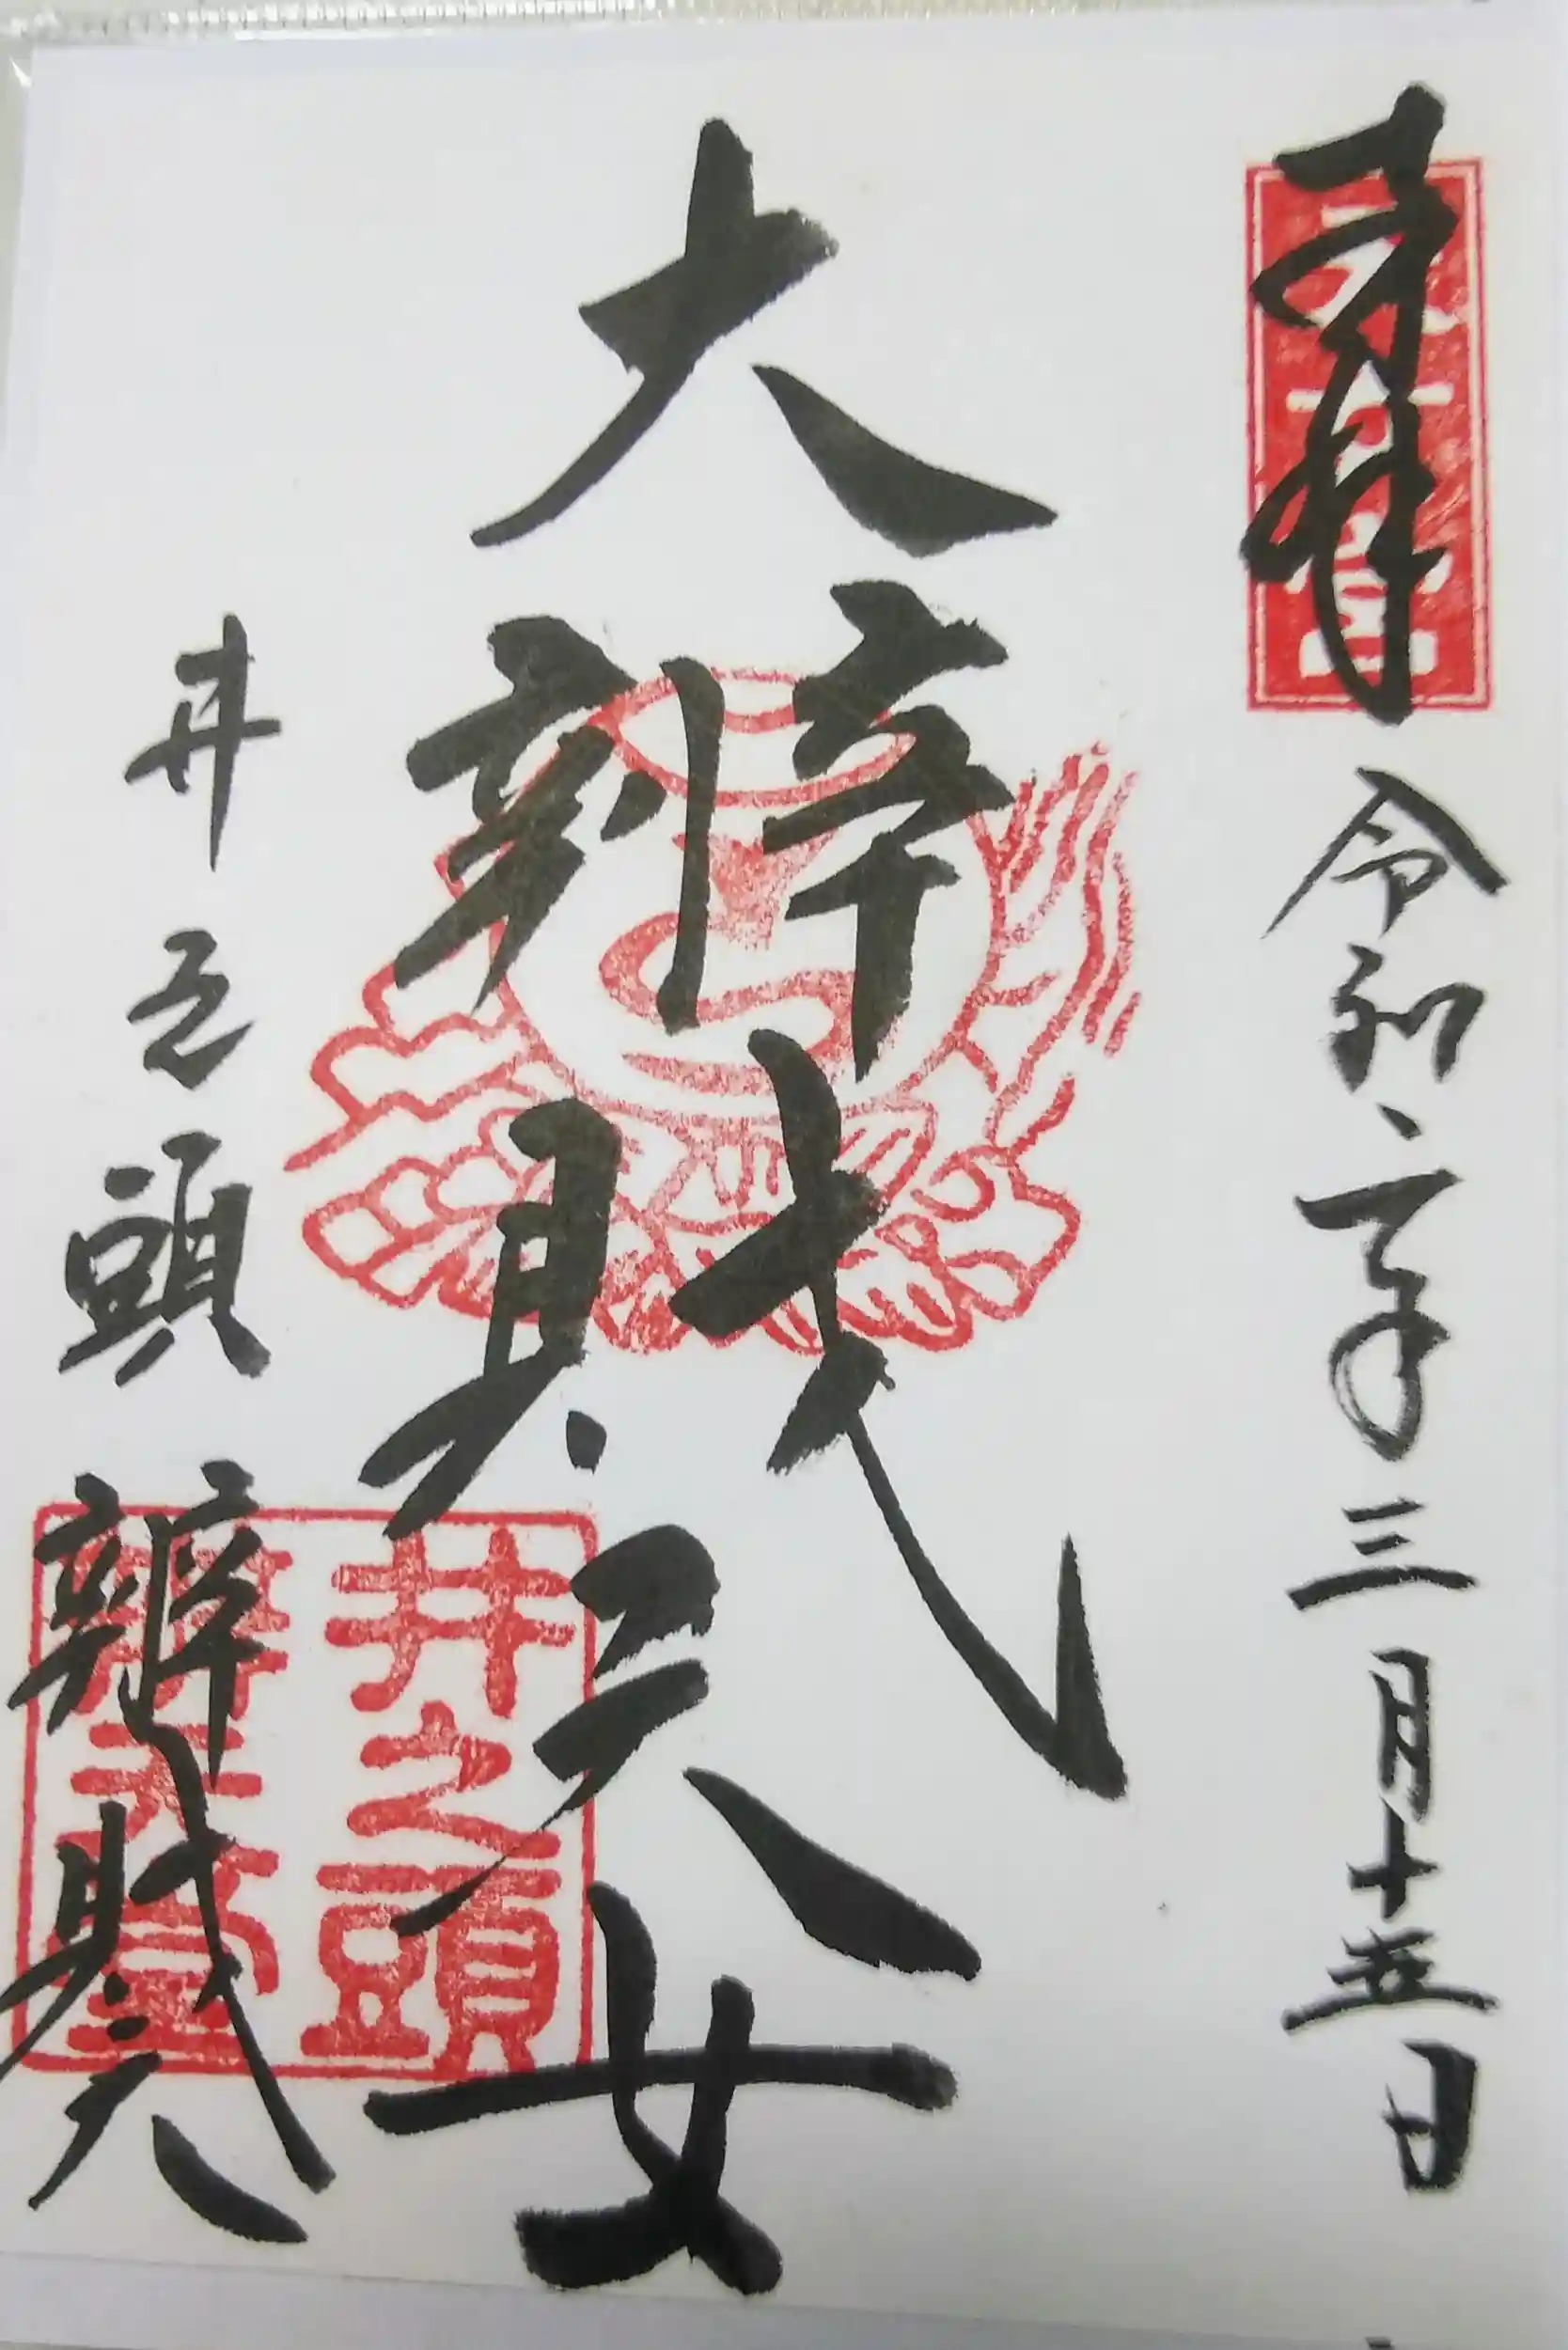 奉拝
令和二年三月十五日
大辨財天女
井之頭 辨財天
井之頭
辨天堂